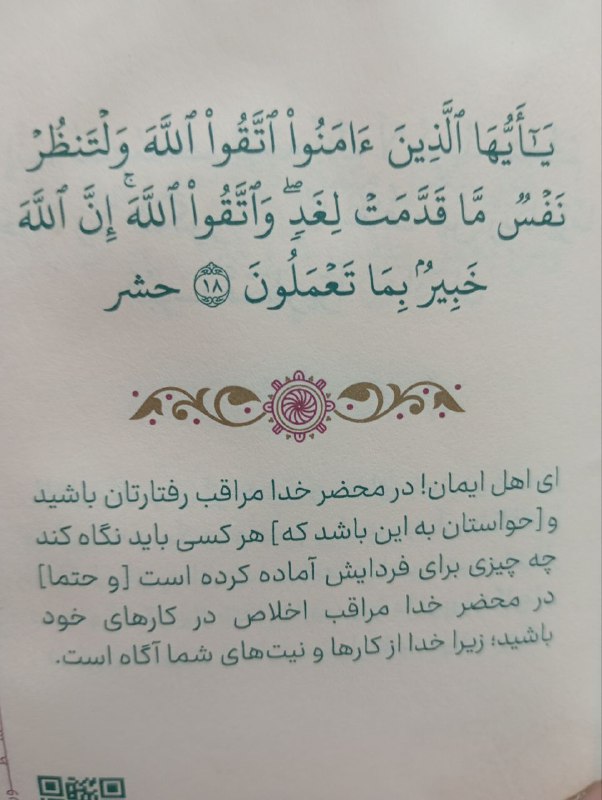 يَـٰٓأَيُّهَا ٱلَّذِينَ ءَامَنُوا۟ ٱتَّقُوا۟ ٱللَّهَ وَلْتَنظُرْ
نَفْسٌ مَّا قَدَّمَتْ لِغَدٍۢ ۖ وَٱتَّقُوا۟ ٱللَّهَ ۚ إِنَّ ٱللَّهَ
خَبِيرٌۢ بِمَا تَعْمَلُونَ ١٨ حشر
ای اهل ایمان! در محضر خدا مراقب رفتارتان باشید
و [حواستان به این باشد که] هر کسی باید نگاه کند
چه چیزی برای فردایش آماده کرده است [و حتما]
در محضر خدا مراقب اخلاص در کارهای خود
باشید؛ زیرا خدا از کارها و نیت‌های شما آگاه است.